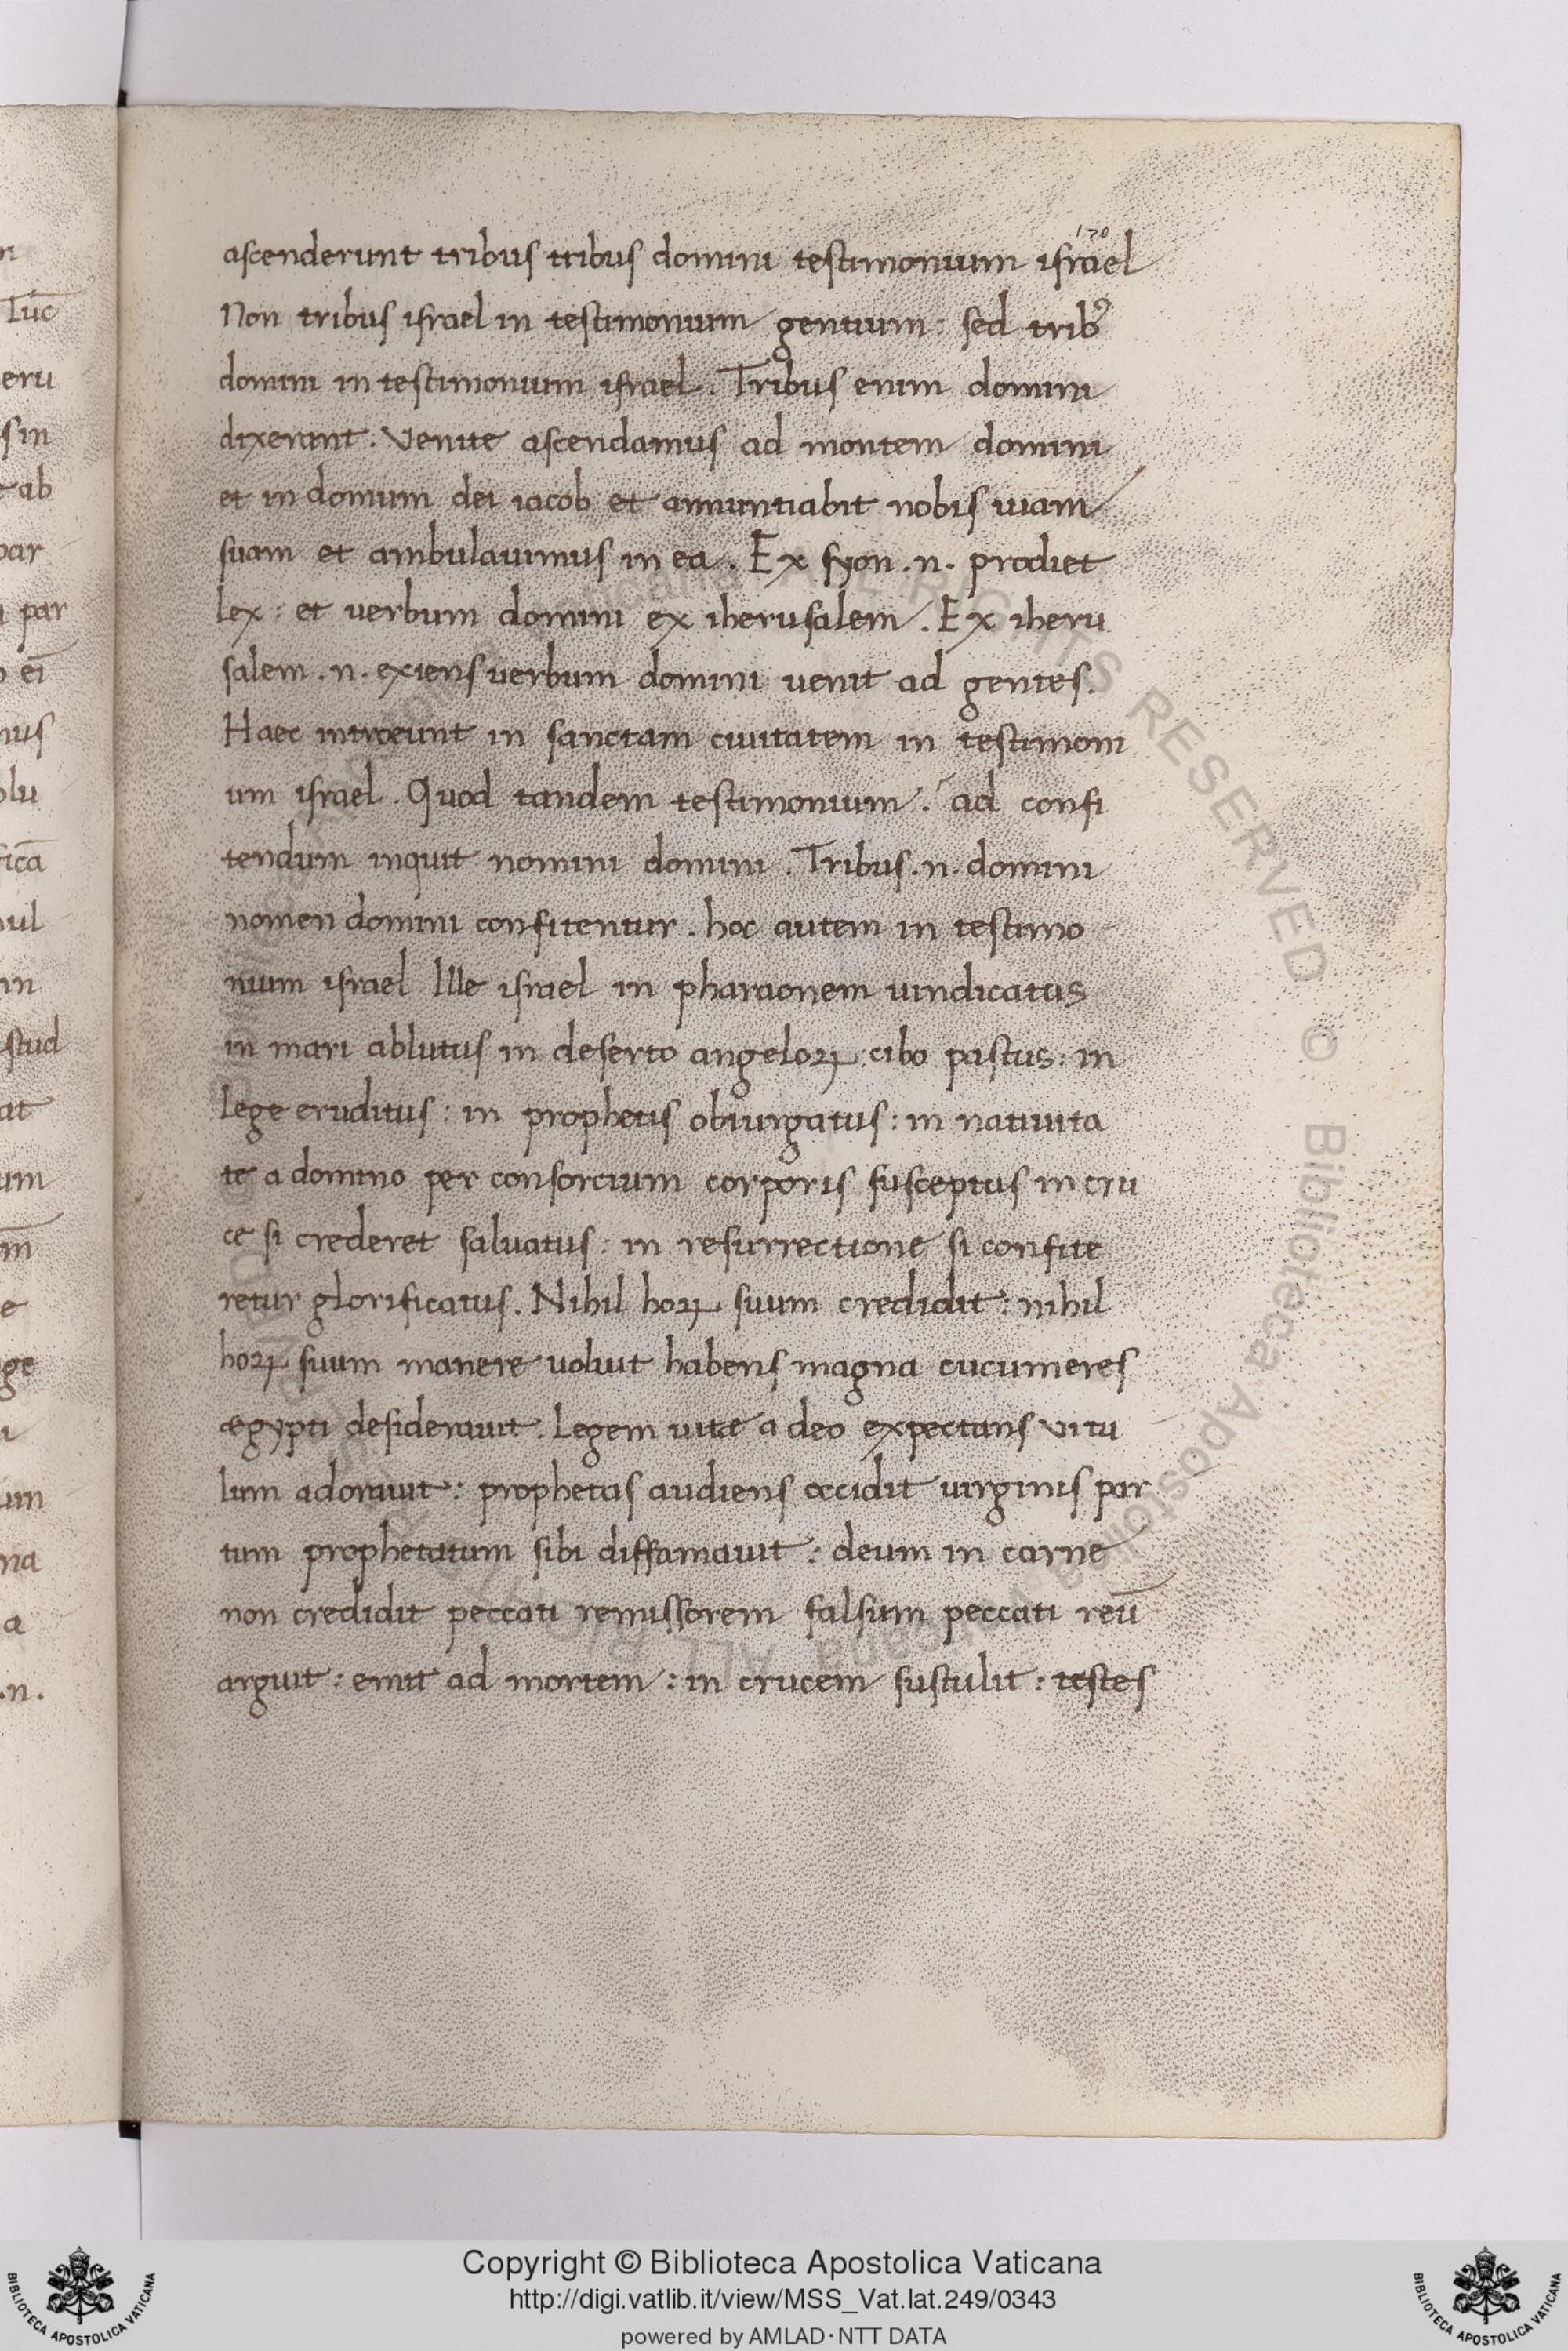 170
ascenderunt tribus tribus domini testimonium israel
Non tribus israel in testimonium gentium: sed trib⁹
domini in testimonium israel. Tribus enim domini
dixerant. Venite ascendamus ad montem domini
et in domum dei iacob et annuntiabit nobis uiam
suam et ambulauimus in ea. Ex syon .n. prodiet
lex: et uerbum domini ex iherusalem. Ex iheru
salem .n. exiens uerbum domini uenit ad gentes.
Haec introeunt in sanctam ciuitatem in testimoni
um israel. Quod tandem testimonium? ad confi
tendum inquit nomini domini. Tribus .n. domini
nomen domini confitentur. hoc autem in testimo
nium israel Ille israel in pharaonem uindicatus
in mari ablutus in deserto angeloꝝ cibo pastus: in
lege eruditus: in prophetis obiurgatus: in natiuita
te a domino per consorcium corporis susceptus in cru
ce si crederet saluatus: in resurrectione si confite
retur glorificatus. Nihil hoꝝ suum credidit: nihil
hoꝝ suum manere uoluit habens magna cucumeres
ægypti desiderauit. Legem uitæ a deo expectans vitu
lum adorauit: prophetas audiens occidit uirginis par
tum prophetatum sibi diffamauit: deum in carne
non credidit peccati remissorem falsum peccati reū
arguit: emit ad mortem: in crucem sustulit: testes
Copyright © Biblioteca Apostolica Vaticana
http://digi.vatlib.it/view/MSS_Vat.lat.249/0343
powered by AMLAD·NTT DATA